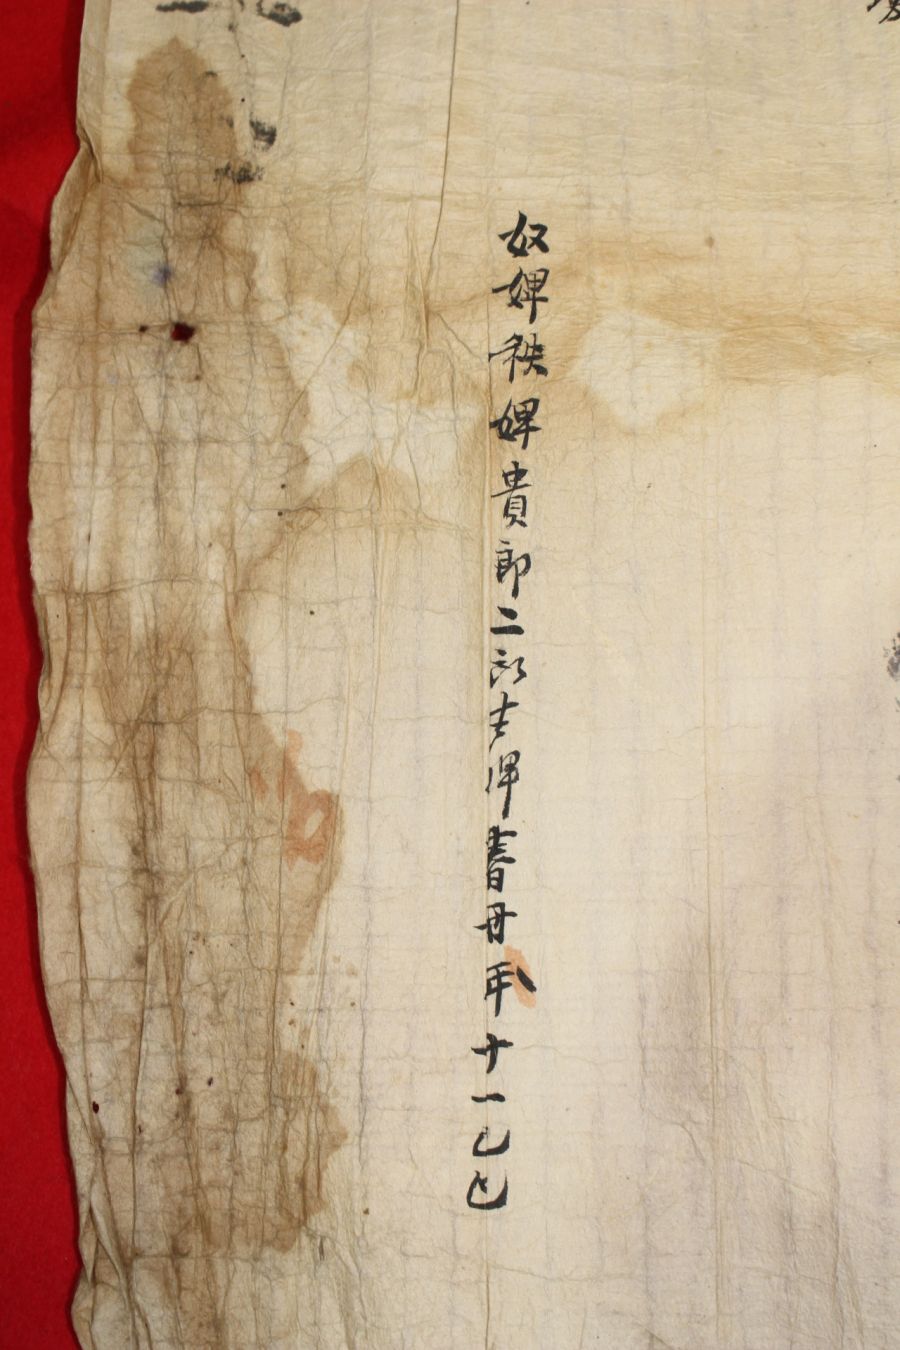 奴婢秩婢貴郎二所生婢春丹年十一乙巳